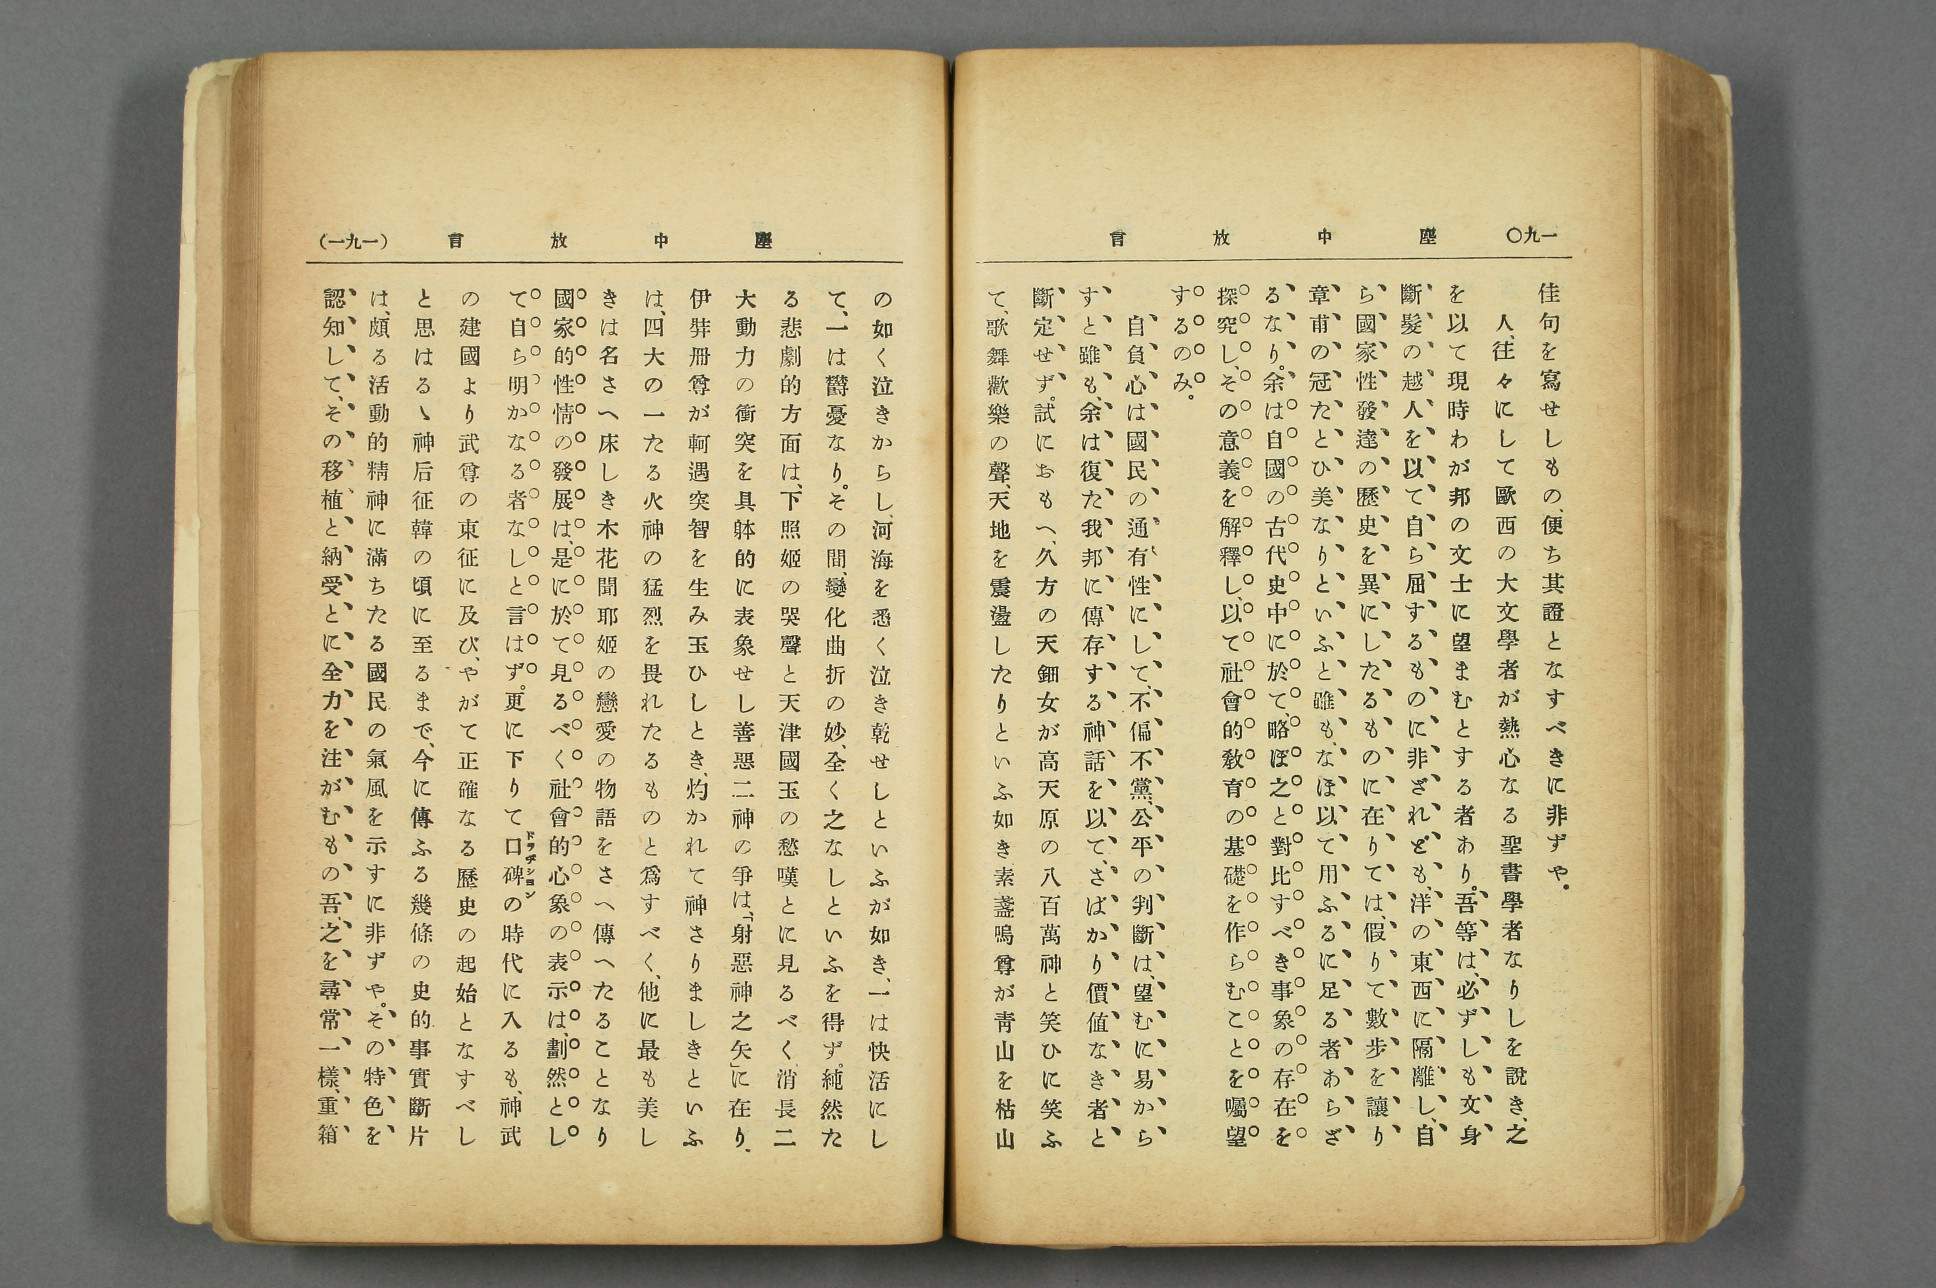 一九〇 塵中放言
佳句を寫せしもの、便ち其證となすべきに非ずや。
人、往々にして歐西の大文學者が熱心なる聖書學者なりしを說き、之
を以て現時わが邦の文士に望まむとする者あり。吾等は、必ずしも文身
斷髮の越人を以て自ら屈するものに非ざれども、洋の東西に隔離し、自
ら國家性發達の歷史を異にしたるものに在りては、假りて數步を讓り
章甫の冠たとひ美なりといふと雖も、なほ以て用ふるに足る者あらざ
るなり。余は自國の古代史中に於て略ぼ之と對比すべき事象の存在を
探究し、その意義を解釋し、以て社會的敎育の基礎を作らむことを囑望
するのみ。
自負心は國民の通有性にして、不偏不黨、公平の判斷は、望むに易から
すと雖も、余は復た我邦に傳存する神話を以て、さばかり價値なき者と
斷定せず。試におもへ、久方の天鈿女が高天原の八百萬神と笑ひに笑ふ
て、歌舞歡樂の聲、天地を震盪したりといふ如き、素盞嗚尊が靑山を枯山
塵中放言 (一九一)
の如く泣きからし、河海を悉く泣き乾せしといふが如き、一は快活にし
て、一は欝憂なり。その間、變化曲折の妙、全く之なしといふを得ず。純然た
る悲劇的方面は、下照姬の哭聲と天津國玉の愁嘆とに見るべく、消長二
大動力の衝突を具躰的に表象せし善惡二神の爭は、「射惡神之矢」に在り、
伊弉冊尊が軻遇突智を生み玉ひしとき、灼かれて神さりましきといふ
は、四大の一たる火神の猛烈を畏れたるものと爲すべく、他に最も美し
きは名さへ床しき木花開耶姬の戀愛の物語をさへ傳へたることなり
國家的性情の發展は、是に於て見るべく、社會的心象の表示は、劃然とし
て自ら明かなる者なしと言はず。更に下りて口碑の時代に入るも、神武
の建國より武尊の東征に及び、やがて正確なる歷史の起始となすべし
と思はるゝ神后征韓の頃に至るまで、今に傳ふる幾條の史的事實斷片
は、頗る活動的精神に滿ちたる國民の氣風を示すに非ずや。その特色を
認知して、その移植と納受とに全力を注がむもの、吾、之を尋常一樣、重箱